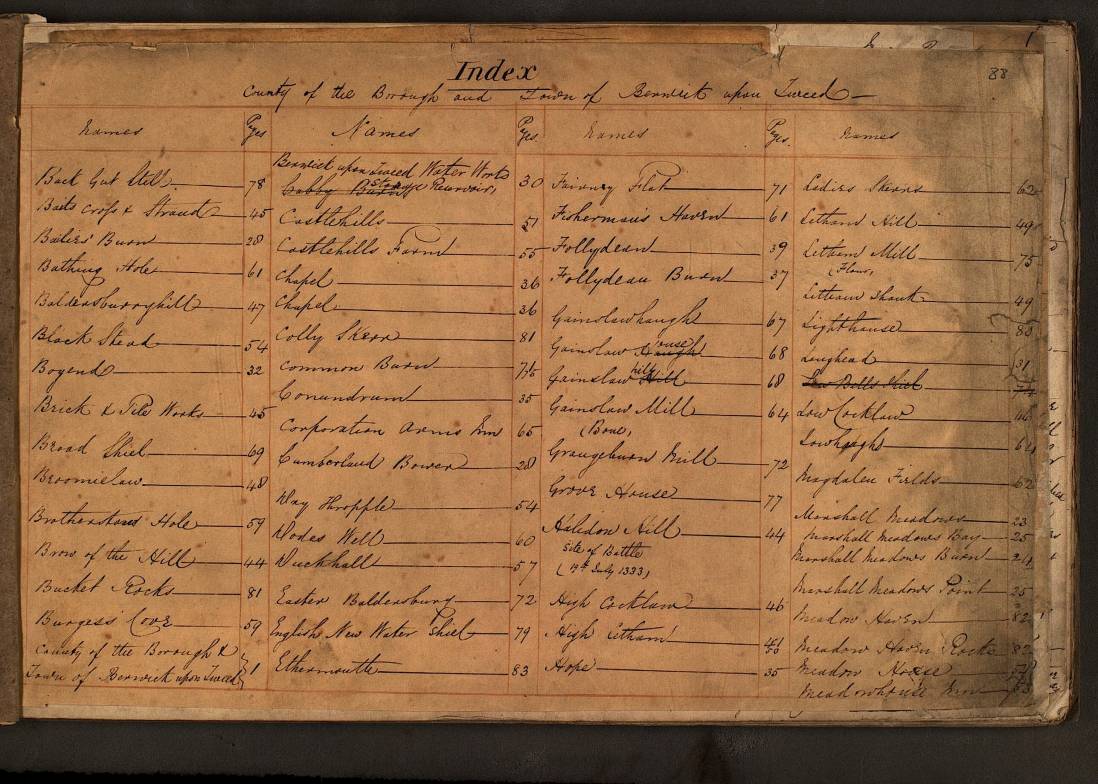 88
Index
County of the Borough and Town of Berwick upon Tweed
Names Pages
Back Gut Still 78
Baits cross & Strand 45
Bailies' Burn 28
Bathing Hole 61
Baldersburyhill 47
Black Stead 54
Bogend 32
Brick & Tile Works 45
Broad Shiel 69
Broomielaw 48
Brotherstons Hole 59
Brow of the Hill 44
Bucket Rocks 81
Burgess' Cove 59
County of the Borough &
Town of Berwick upon Tweed 1
Names Pages
Berwick upon Tweed Water Works
Storage Reservoir 30
Castlehills 51
Castlehills Farm 55
Chapel 36
Chapel 36
Colly Skerr 81
Common Barn 75
Conundrum 35
Corporation Arms Inn 65
Cumberland Bower 28
Day Thropple 54
Dodes Well 60
Duckhall 57
Easter Baldersbury 72
English New Water Shiel 79
Ethermouth 83
Names Pages
Fairney Flat 71
Fisherman's Haven 61
Follydean 39
Follydean Burn 37
Gainslawhaugh 67
Gainslaw House 68
Gainslaw hill 68
Gainslaw Mill 64
(Bone)
Grangeburn Mill 72
Grove House 77
Halidon Hill 44
Site of Battle
(19th July 1333)
High Cocklaw 46
High Letham 50
Hope 35
Names
Ladies Skerrs 62
Letham Hill 49
Letham Mill 75
(Flour)
Letham Shank 49
Lighthouse 85
Loughead 31
Low Bells Shiel
Low Cocklaw 46
Lowhaughs 64
Magdalen Fields 62
Marshall Meadows 23
Marshall Meadows Bay 25
Marshall Meadows Burn 24
Marshall Meadows Point 25
Meadow Haven 82
Meadow Haven Rocks 82
Meadow House
Meadowhouse Inn 53